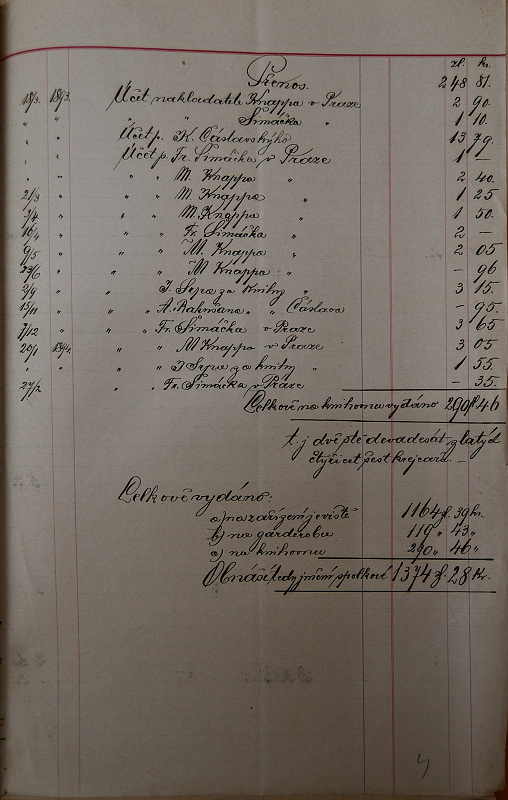 zl. kr.
Přenos. 248 81.
18/3. 1893. Účet nakladatele Knappa v Praze 2 90.
" " " Šimáčka " 1 10.
" " Účet p. K. Čáslavského 13 79.
" " Účet p. Fr. Šimáčka v Praze 1 –
" " " " M. Knappa " 2 40.
21/3 " " " M. Knappa " 1 25
3/4 " " " M. Knappa " 1 50.
16/4 " " " Fr. Šimáčka " 2 –
9/5 " " " M. Knappa " 2 05
23/6 " " " M Knappa " – 96
2/9 " " J. Srpa za knihy " 3 15.
15/11 " " " A. Rakmana " " Čáslava – 95.
7/12 " " " Fr. Šimáčka v Praze 3 65
20/1 1894. " " M Knappa v Praze 3 05
" " " " J Srpa za knihy " 1 55.
27/2 " " Fr. Šimáčka v Praze – 35.
Celkově na knihovnu vydáno 290 fl 46
t. j dvě stě devadesát zlatých
čtyřicet šest krejcarů. –
Celkově vydáno:
a) na zařízení jeviště 1164 f. 39 kr.
b) na garderobu 119 " 43 "
c) na knihovnu 290 " 46 "
Obnáší tedy jmění spolkové 1374 f. 28 Kr.